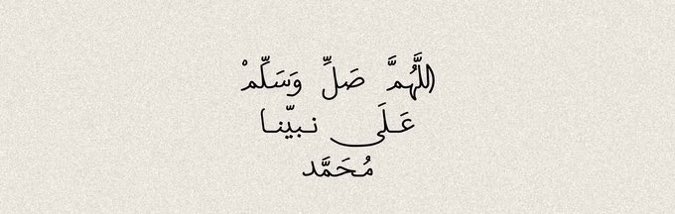 اللَّهُمَّ صَلِّ وَسَلِّمْ
عَلَى نبيّنا
مُحَمَّد